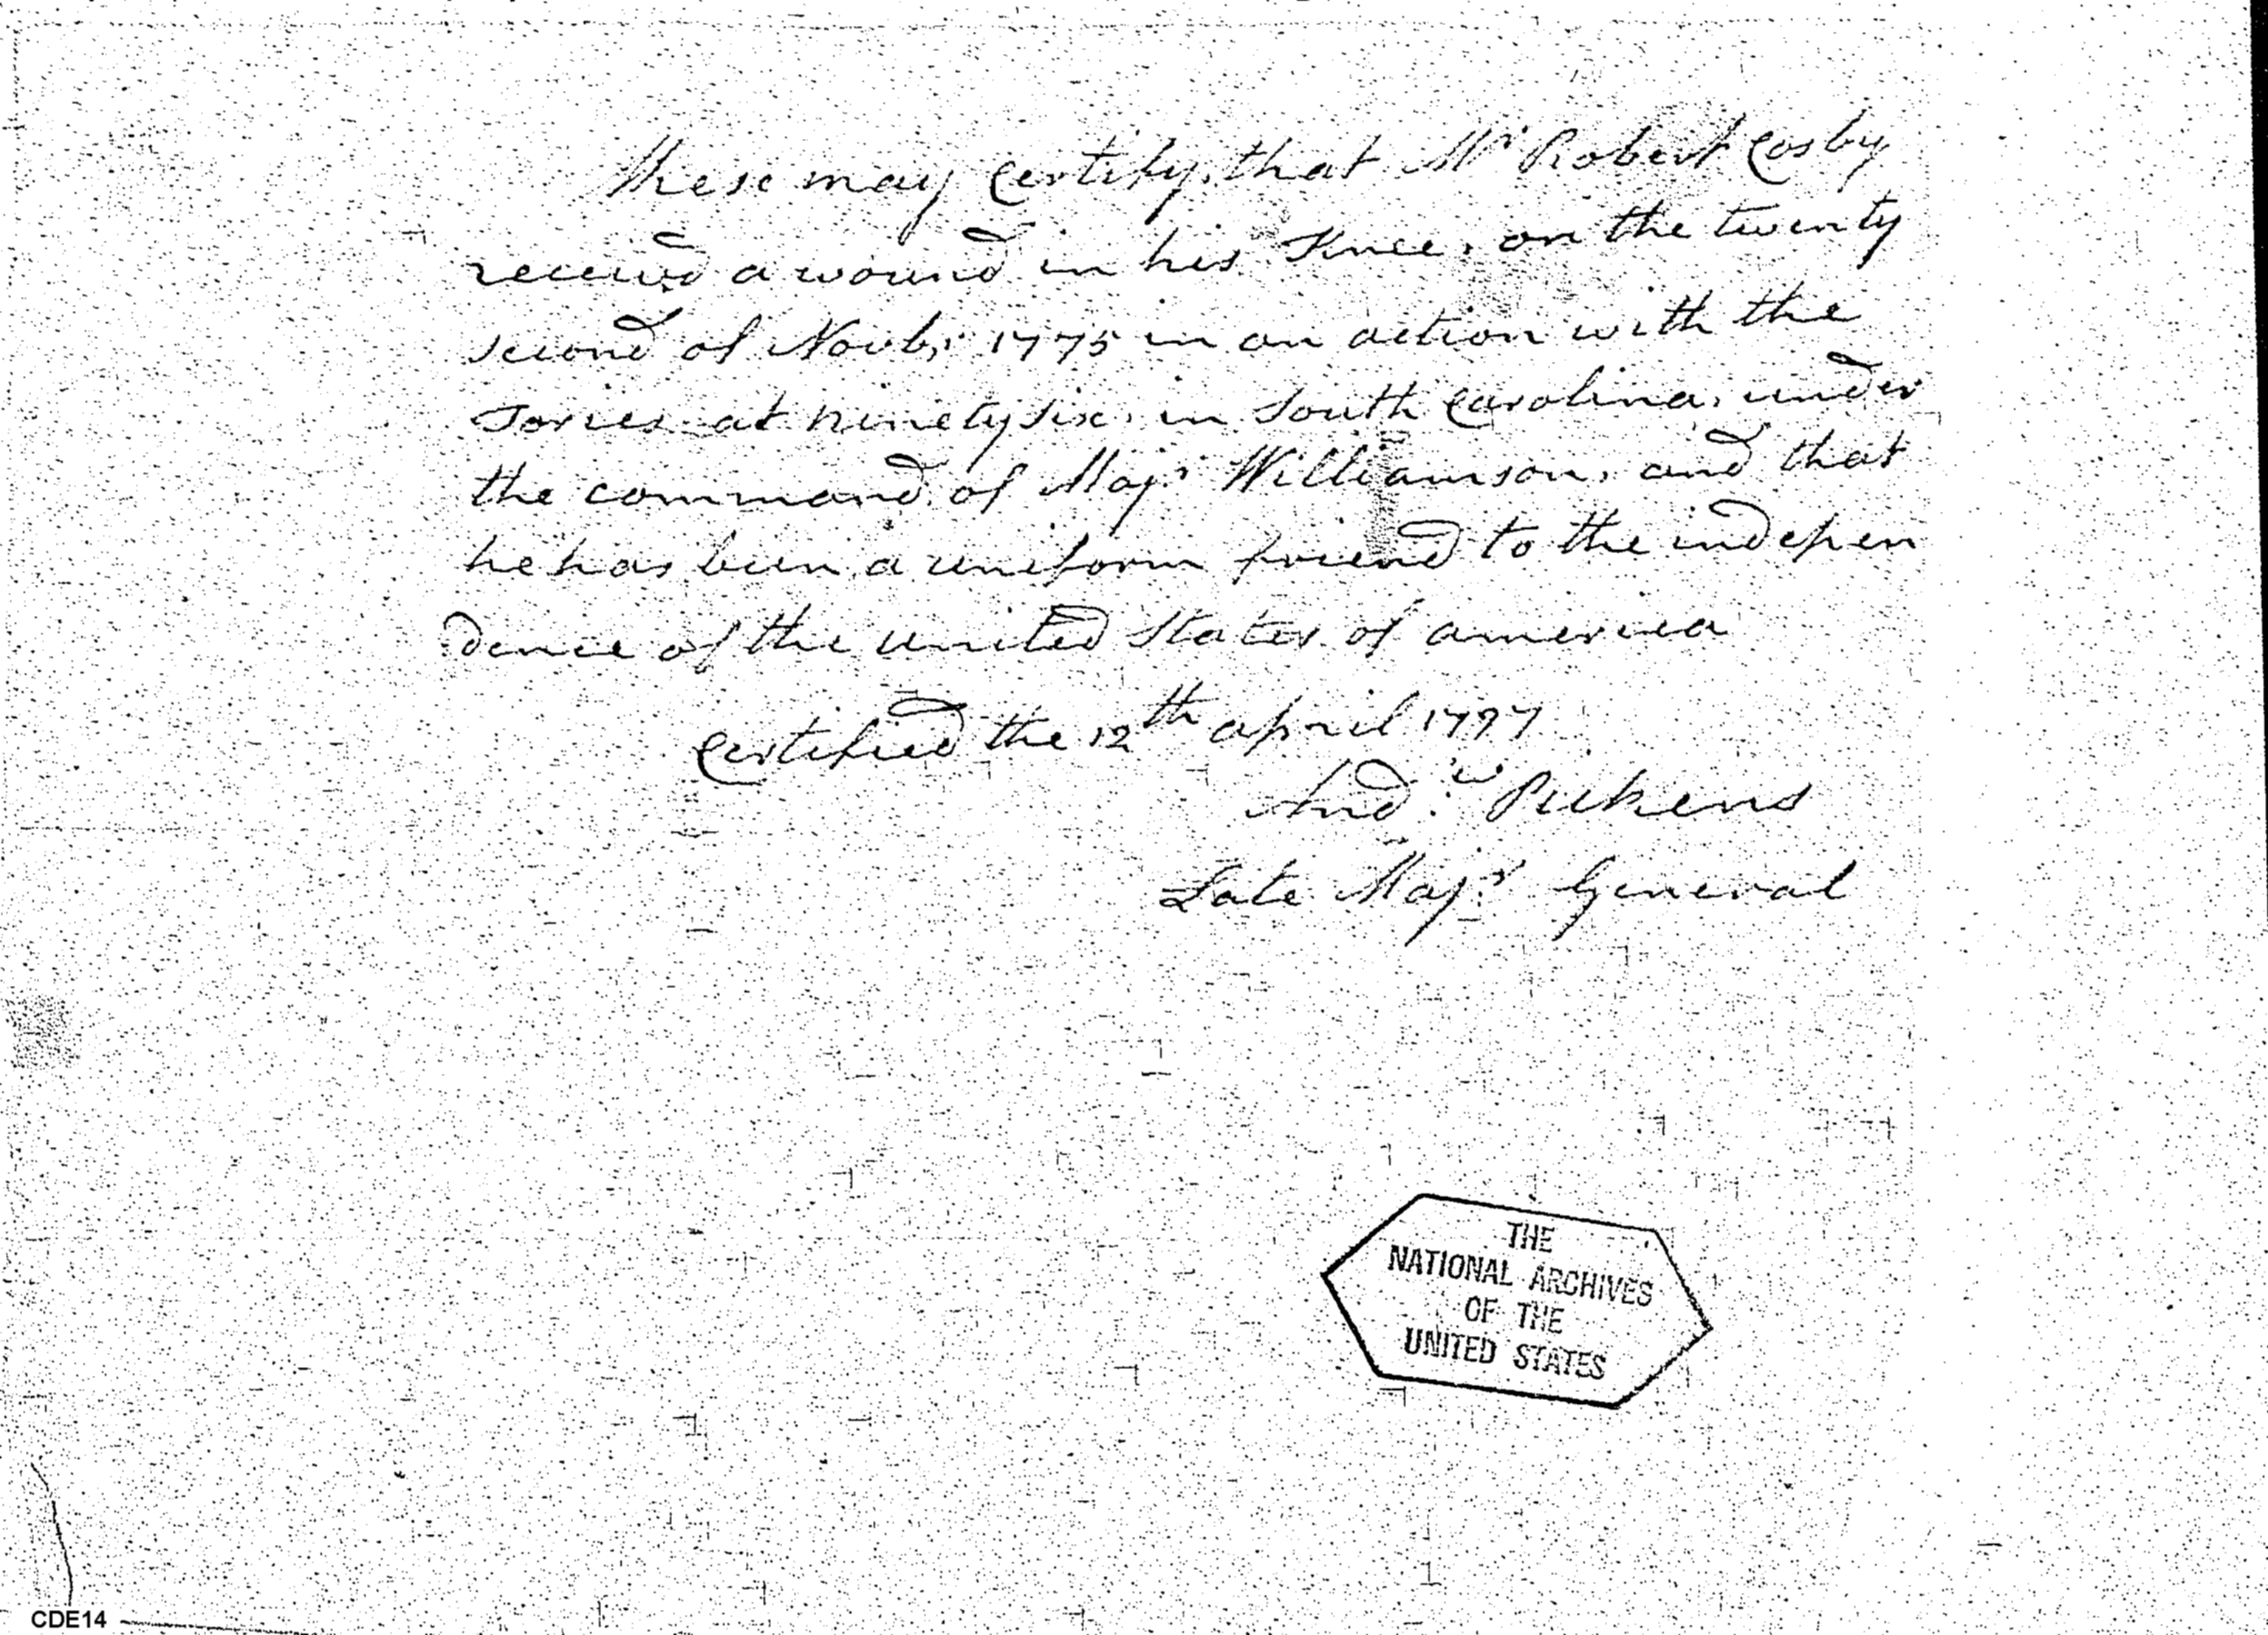 These may certify, that Mr Robert Cosby
receivd a wound in his Knee, on the twenty
second of Novbr 1775 in an action with the
Tories at ninety six, in South Carolina, under
the command of Majr Williamson, and that
he has been a uniform friend to the indepen
dence of the united States of america
Certified the 12th april 1797
Andw Pickens
Late Majr General
THE
NATIONAL ARCHIVES
OF THE
UNITED STATES
CDE14